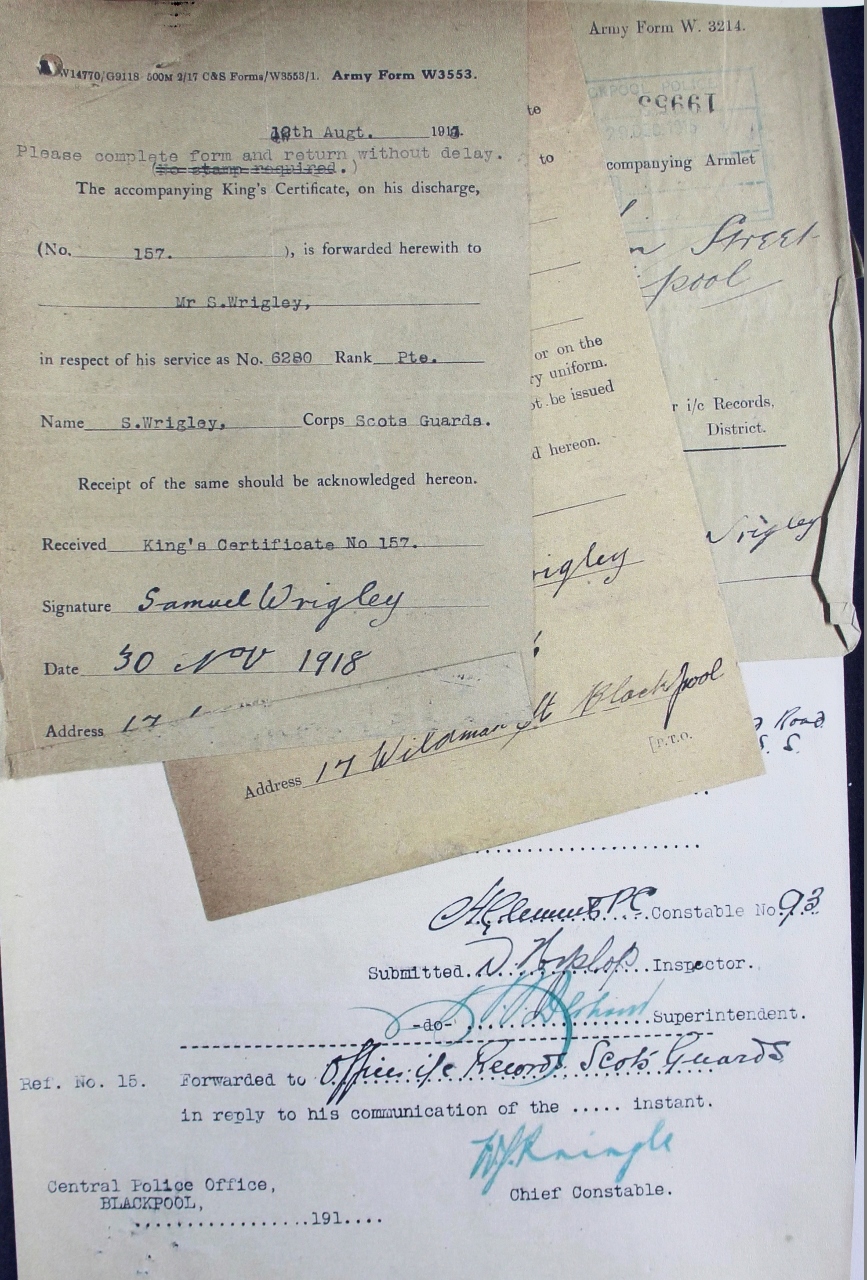 W14770/G9118 500M 2/17 C&S Forms/W3553/1. Army Form W3553.
12th Augt. 191
Please complete form and return without delay.
(No stamp required.)
The accompanying King's Certificate, on his discharge,
(No. 157. ), is forwarded herewith to
Mr S.Wrigley,
in respect of his service as No. 6280 Rank Pte.
Name S.Wrigley, Corps Scots Guards.
Receipt of the same should be acknowledged hereon.
Received King's Certificate No 157.
Signature Samuel Wrigley
Date 30 Nov 1918
Address 17
to
to
or on the
ry uniform.
ot be issued
d hereon.
rigley
Address 17 Wildman St Blackpool
[P.T.O.
Army Form W. 3214.
19955
companying Armlet
Street
pool
r i/c Records,
District.
Wrigley
Road
S. S.
H Clements PC Constable No. 93
Submitted. Inspector.
-do- Superintendent.
Ref. No. 15. Forwarded to Officer i/c Records Scots Guards
in reply to his communication of the ..... instant.
Chief Constable.
Central Police Office,
BLACKPOOL,
..................191....